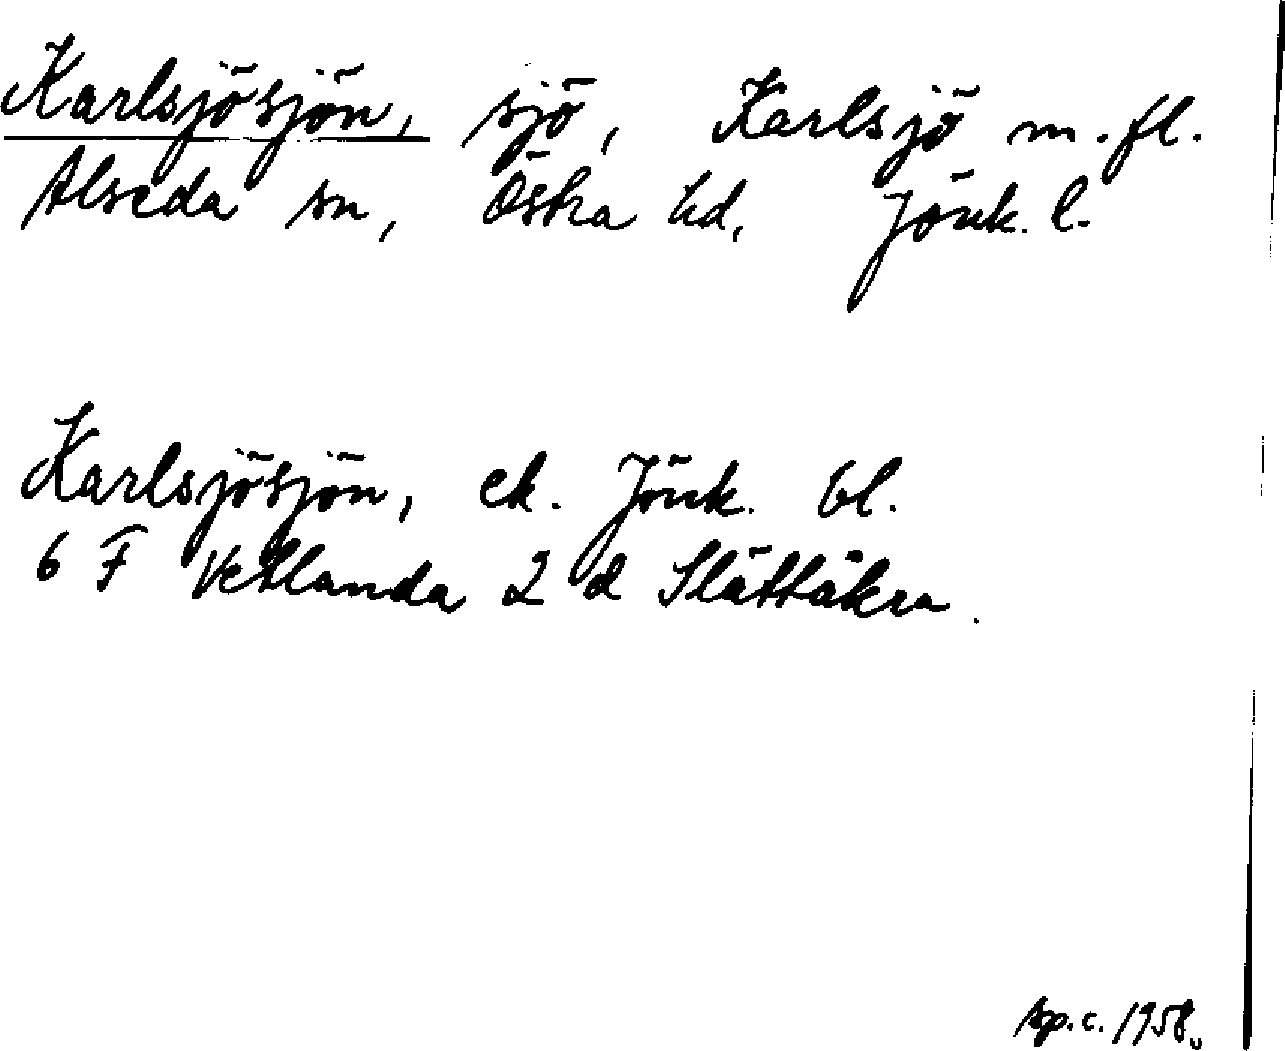 Karlsjösjön, sjö, Karlsjö m. fl.
Alseda sn, Östra hd, Jönk. l.
Karlsjösjön, ek. Jönk. bl.
6 F Vetlanda 2 d Slättåkra.
sp.c. 1958.